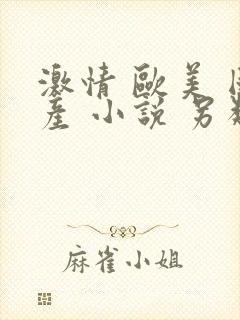 激情 歐美
產 小說 另
麻雀小姐